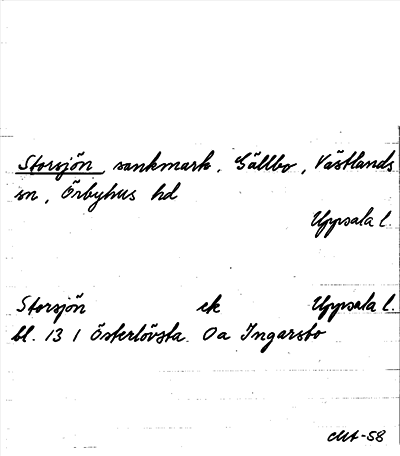 Storsjön, sankmark, Gällbo, Västlands
sn, Örbyhus hd
Uppsala l.
Storsjön ek Uppsala l.
bl. 131 Österlövsta Oa Ingarsbo
-58